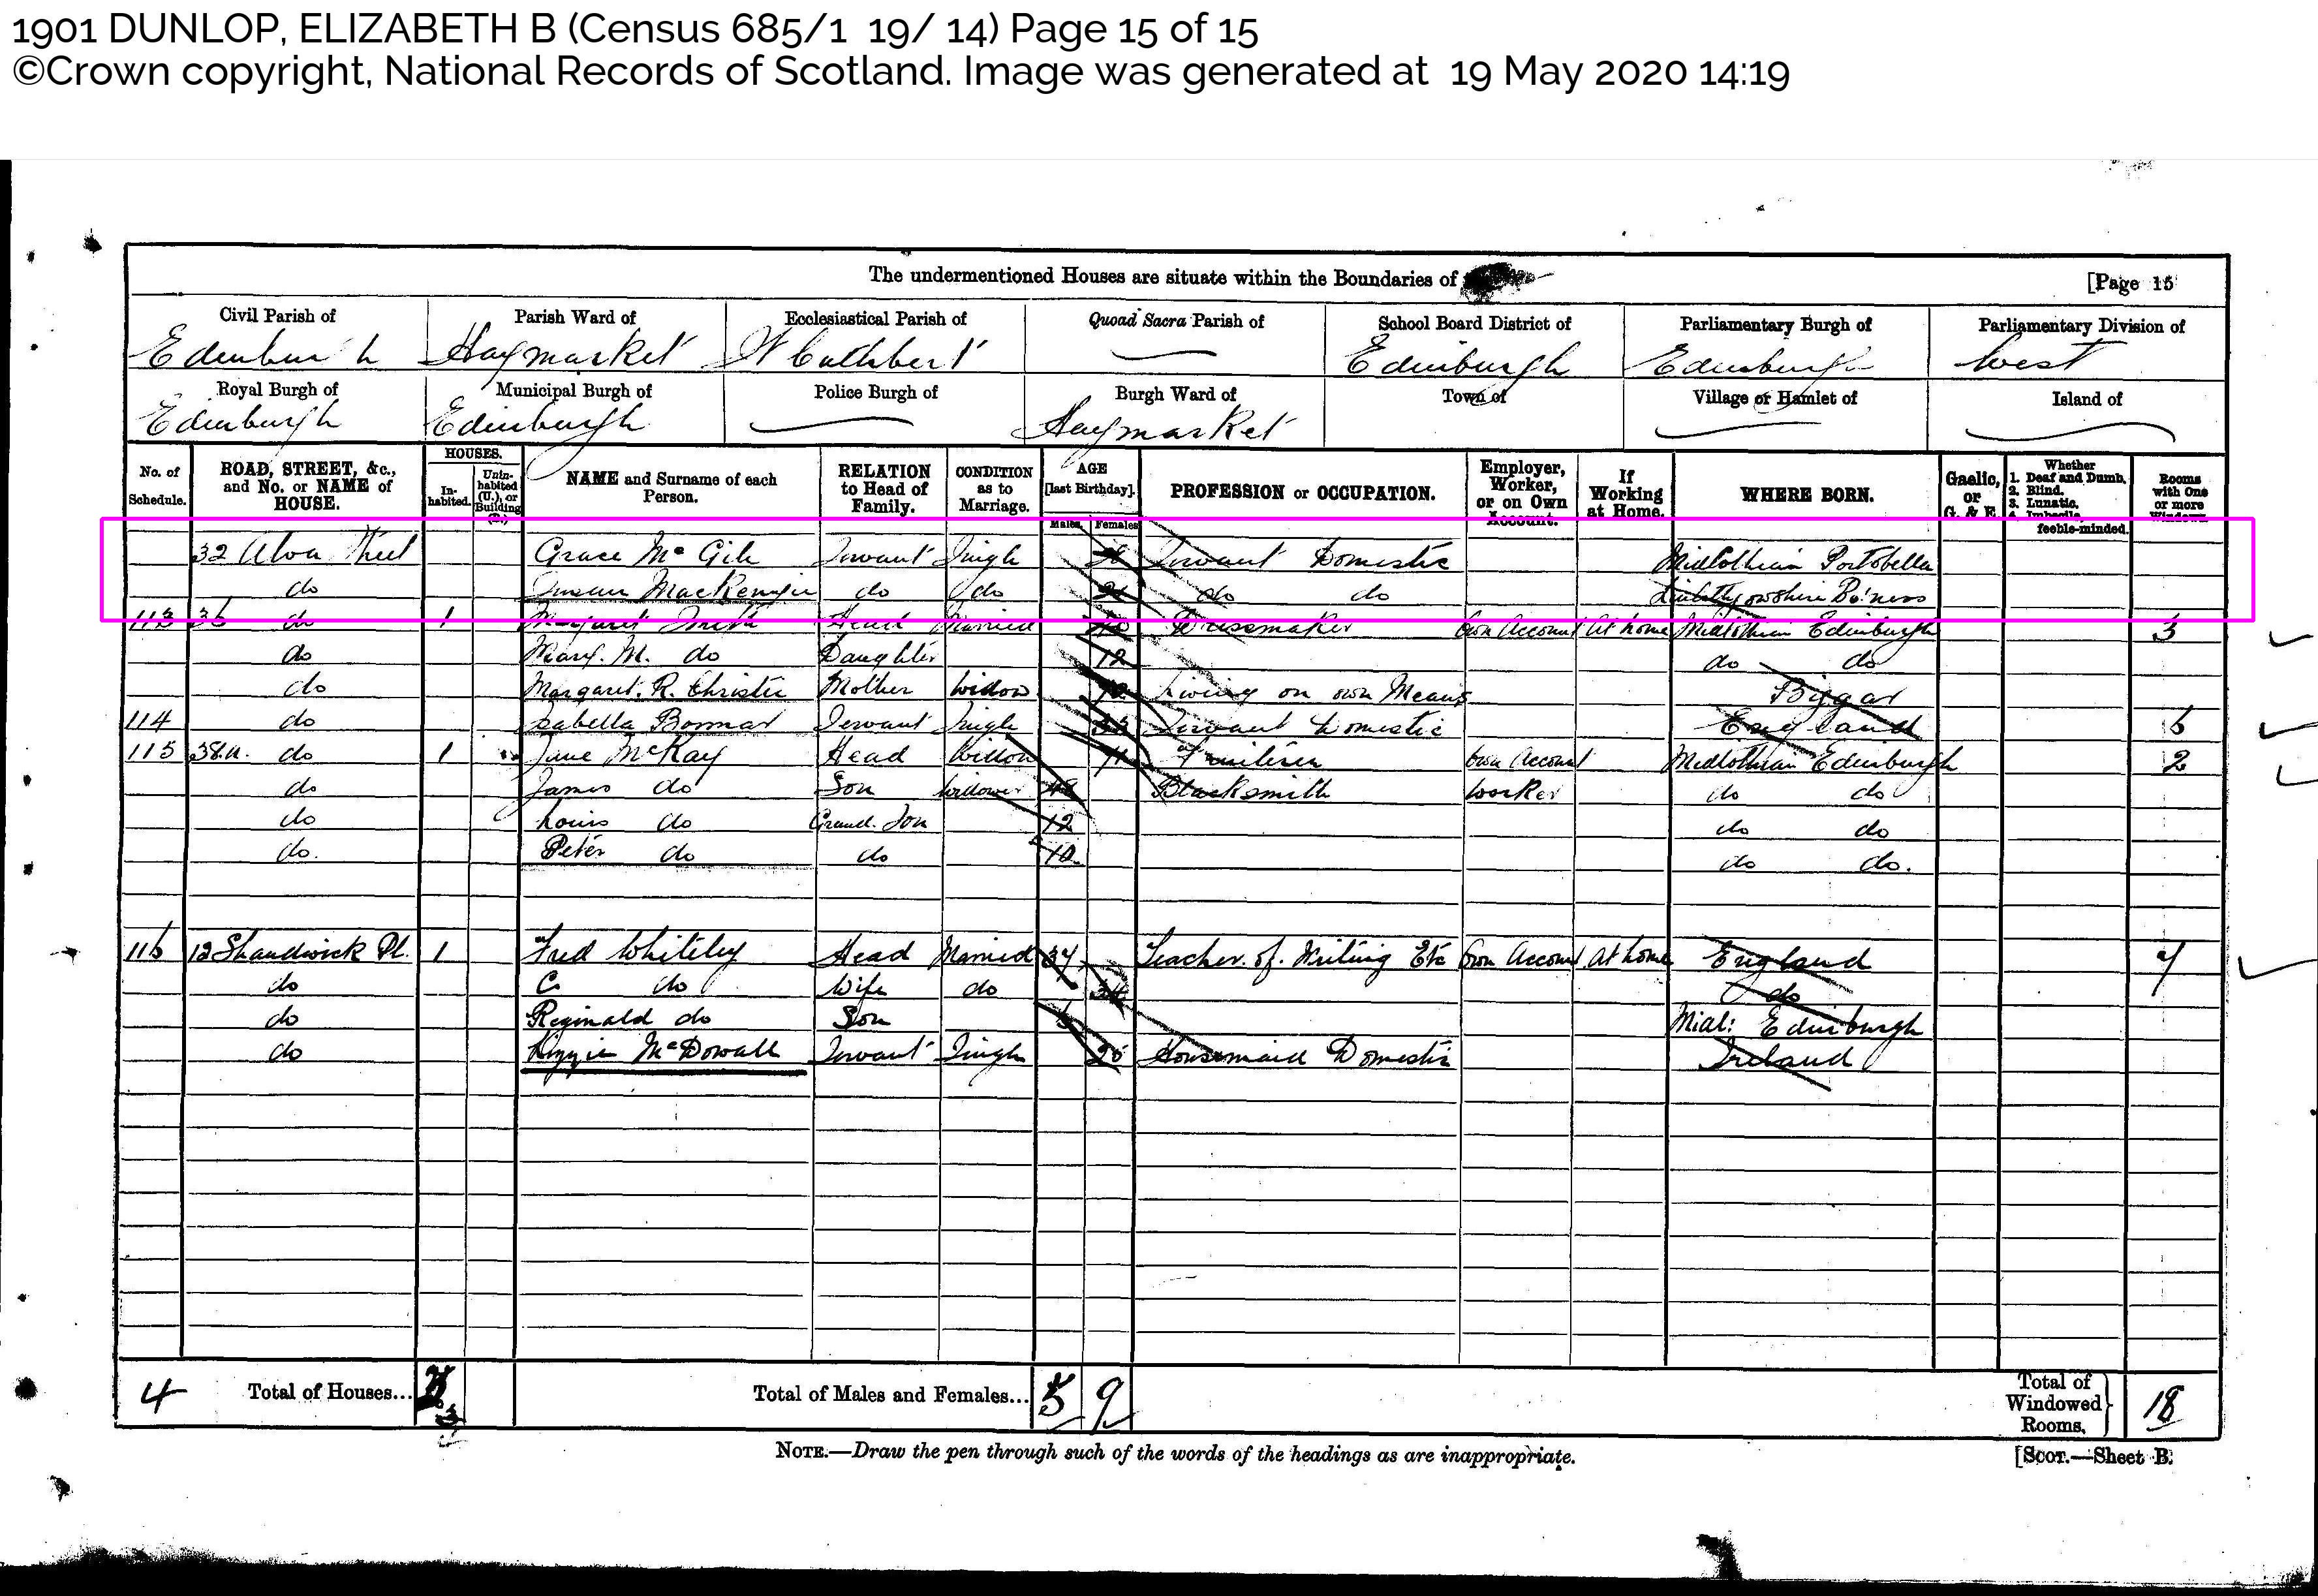 1901 DUNLOP, ELIZABETH B (Census 685/1 19/ 14) Page 15 of 15
©Crown copyright, National Records of Scotland. Image was generated at 19 May 2020 14:19
The undermentioned Houses are situate within the Boundaries of [Page 15
Civil Parish of Parish Ward of Ecclesiastical Parish of Quoad Sacra Parish of School Board District of Parliamentary Burgh of Parliamentary Division of
Edinburgh Haymarket St Cuthbert Edinburgh Edinburgh West
Royal Burgh of Municipal Burgh of Police Burgh of Burgh Ward of Town of Village or Hamlet of Island of
Edinburgh Edinburgh Haymarket
No. of Schedule. ROAD, STREET, &c., and No. or NAME of HOUSE. HOUSES. In-habited. Unin-habited (U.), or Building (B.) NAME and Surname of each Person. RELATION to Head of Family. CONDITION as to Marriage. AGE [last Birthday]. Males. Females PROFESSION or OCCUPATION. Employer, Worker, or on Own Account. If Working at Home. WHERE BORN. Gaelic, or G. & E. Whether 1. Deaf and Dumb. 2. Blind. 3. Lunatic. 4. Imbecile, feeble-minded. Rooms with One or more Windows.
32 Alva Street Grace McGill Servant Single Servant Domestic Midlothian Portobello
do Susan MacKenzie do do do do Linlithgowshire Bo'ness
113 36 do 1 Margaret Smith Head Married Dressmaker Own Account At home Midlothian Edinburgh 3
do Mary. M. do Daughter 12 do do
do Margaret. R. Christie Mother Widow Living on own Means Biggar
114 do Isabella Servant Single 33 Servant Domestic England 6
115 38a. do 1 Jane McKay Head Widow Own Account Midlothian Edinburgh 2
do James do Son Widower 48 Blacksmith Worker do do
do Louis do Grand. Son 12 do do
do. Peter do do 10 do do.
116 12 Shandwick Pl. 1 Fred Whiteley Head Married 34 Teacher. of. Writing Etc Own Account At home England 7
do C. do Wife do 34 do
do Reginald do Son Mid: Edinburgh
do Lizzie McDowall Servant Single Housemaid Domestic Ireland
4 Total of Houses... 3 Total of Males and Females... 5 9 Total of Windowed Rooms, 18
NOTE.—Draw the pen through such of the words of the headings as are inappropriate. [SCOT.—Sheet B.